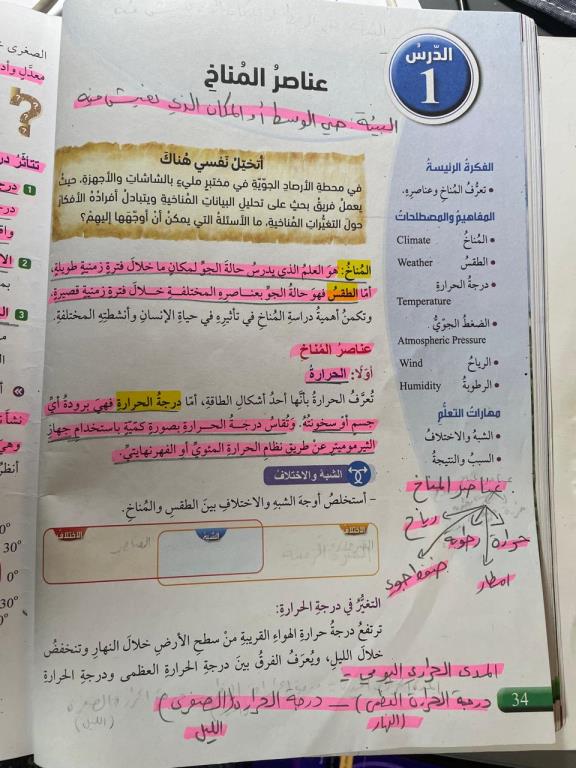 الدّرسُ
1
عناصرُ المُناخِ
البيئة: هي الوسط أو المكان الذي نعيش فيه
أتخيّلُ نَفسي هُناكَ
في محطةِ الأرصادِ الجوّيّةِ في مختبرٍ مليءٍ بالشاشاتِ والأجهزةِ، حيثُ
يعملُ فريقُ بحثٍ على تحليلِ البياناتِ المُناخيةِ ويتبادلُ أفرادُهُ الأفكارَ
حولَ التغيُّراتِ المُناخيّةِ، ما الأسئلةُ التي يمكنُ أنْ أوجّهَها إليهِمْ؟
المُناخُ: هوَ العلمُ الذي يدرسُ حالةَ الجوِّ لمكانٍ ما خلالَ فترةٍ زمنيةٍ طويلةٍ،
أمّا الطقسُ فهوَ حالةُ الجوِّ بعناصرِهِ المختلفةِ خلالَ فترةٍ زمنيّةٍ قصيرةٍ.
وتكمنُ أهميةُ دراسةِ المُناخِ في تأثيرِهِ في حياةِ الإنسانِ وأنشطتِهِ المختلفةِ.
عناصرُ المُناخِ
أوّلًا: الحرارةُ
تُعرَّفُ الحرارةُ بأنّها أحدُ أشكالِ الطاقةِ، أمّا درجةُ الحرارةِ فهيَ برودةُ أيِّ
جسمٍ أوْ سخونتُهُ. وتُقاسُ درجةُ الحرارةِ بصورةٍ كمّيّةٍ باستخدامِ جهازِ
الثيرموميترِ عنْ طريقِ نظامِ الحرارةِ المئويِّ أو الفهرنهايتيِّ.
الشبهُ والاختلافُ
- أستخلصُ أوجهَ الشبهِ والاختلافِ بينَ الطقسِ والمُناخِ.
الاختلاف
الشبه
الاختلاف
التغيُّرُ في درجةِ الحرارةِ:
ترتفعُ درجةُ حرارةِ الهواءِ القريبةِ منْ سطحِ الأرضِ خلالَ النهارِ وتنخفضُ
خلالَ الليلِ، ويُعرَفُ الفرقُ بينَ درجةِ الحرارةِ العظمى ودرجةِ الحرارةِ
المدى الحراري اليومي =
درجة الحرارة العظمى) - درجة الحرارة (الصغرى)
(النهار)
الليل
الفكرةُ الرئيسةُ
• تعرُّفُ المُناخِ وعناصرِهِ.
المفاهيمُ والمصطلحاتُ
• المُناخُ Climate
• الطقسُ Weather
• درجةُ الحرارةِ
Temperature
• الضغطُ الجوّيُّ
Atmospheric Pressure
• الرياحُ Wind
• الرطوبةُ Humidity
مهاراتُ التعلُّمِ
• الشبهُ والاختلافُ
• السببُ والنتيجةُ
عناصر المناخ
رياح
حرارة
رطوبة
امطار
34
الصغرى
1
2
3
30°
0°
30°